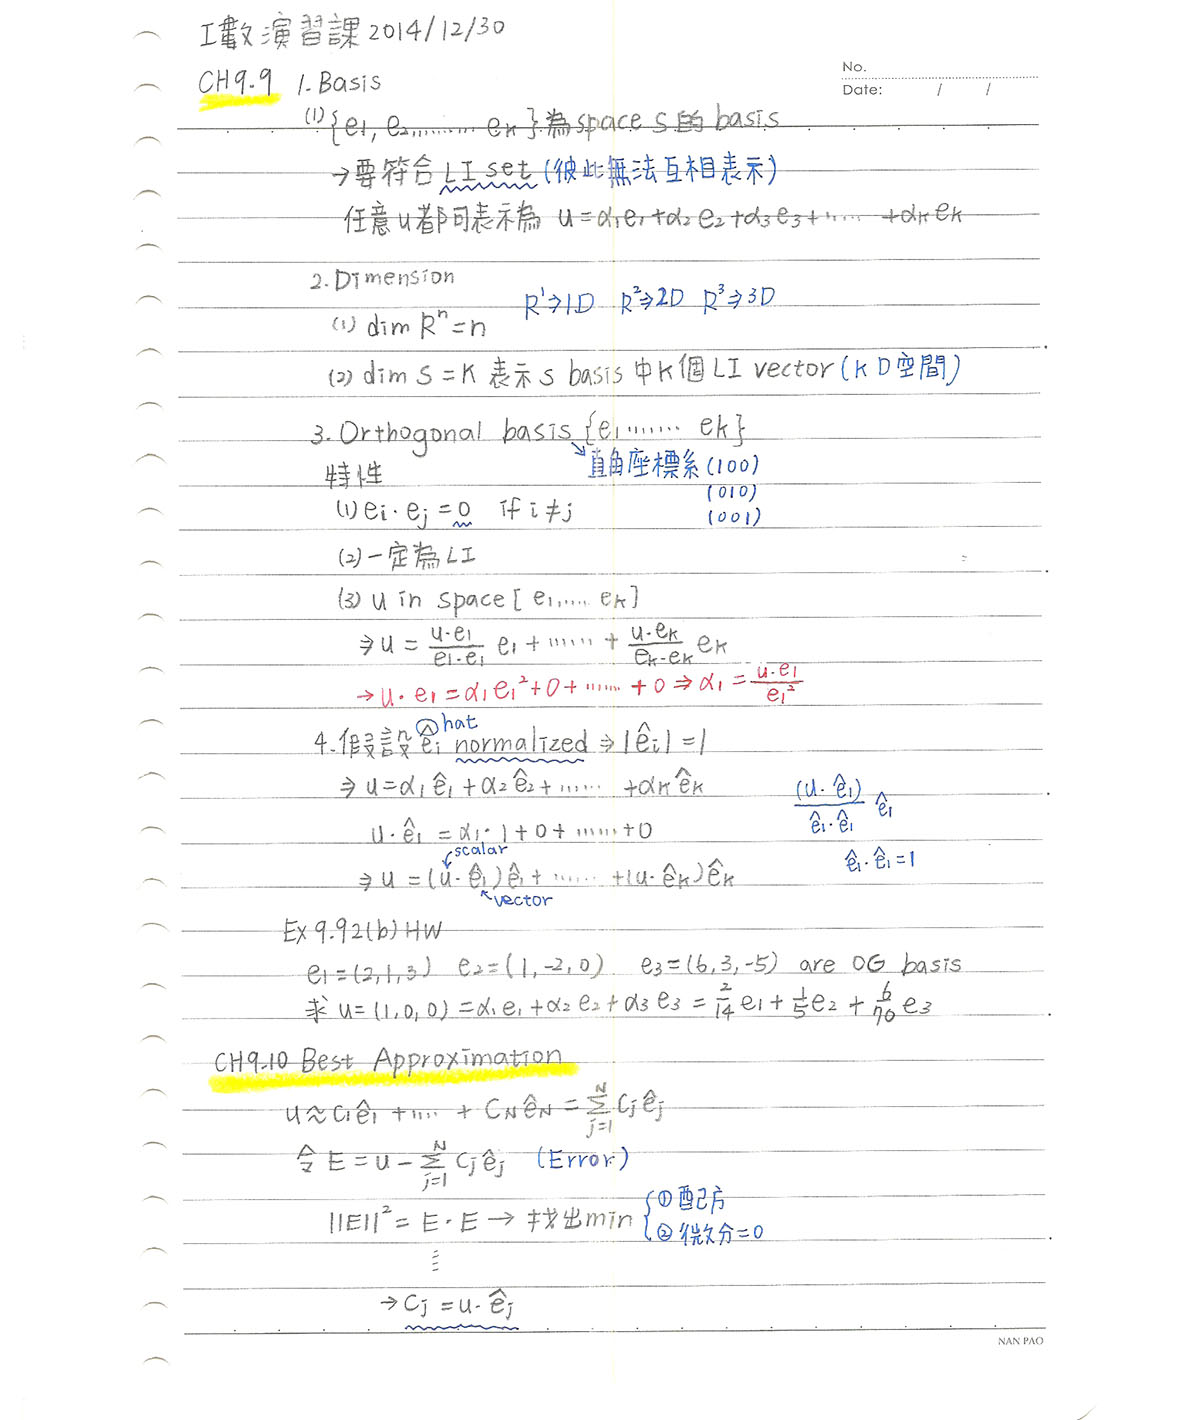 工數演習課 2014/12/30
No.
Date: / /
CH9.9 1. Basis
(1) {e1, e2, ......... ek} 為 space S 的 basis
→要符合 LI set (彼此無法互相表示)
任意 u 都可表示為 u = α1e1 + α2e2 + α3e3 + ...... + αkek
2. Dimension
R¹⇒1D R²⇒2D R³⇒3D
(1) dim Rⁿ = n
(2) dim S = K 表示 S basis 中 K 個 LI vector (K D 空間)
3. Orthogonal basis {e1 ........ ek}
↘直角座標系 (100)
特性
(010)
(1) ei · ej = 0 if i ≠ j
(001)
(2) 一定為 LI
(3) u in space [ e1, ..... ek ]
⇒ u = (u·e1)/(e1·e1) e1 + ...... + (u·ek)/(ek·ek) ek
→ u·e1 = α1e1² + 0 + ...... + 0 ⇒ α1 = (u·e1)/e1²
hat
4. 假設 êi normalized ⇒ |êi| = 1
⇒ u = α1ê1 + α2ê2 + ...... + αkêk
(u·ê1)/(ê1·ê1) ê1
u·ê1 = α1·1 + 0 + ...... + 0
scalar
ê1·ê1 = 1
⇒ u = (u·ê1)ê1 + ...... + (u·êk)êk
vector
Ex 9.92(b) HW
e1 = (2, 1, 3) e2 = (1, -2, 0) e3 = (6, 3, -5) are OG basis
求 u = (1, 0, 0) = α1e1 + α2e2 + α3e3 = 2/14 e1 + 1/5 e2 + 6/70 e3
CH9.10 Best Approximation
u ≈ C1ê1 + .... + CNêN = Σ_{j=1}^{N} Cjêj
令 E = u - Σ_{j=1}^{N} Cjêj (Error)
||E||² = E·E → 找出 min { ① 配方
② 微分=0
⋮
→ Cj = u·êj
NAN PAO